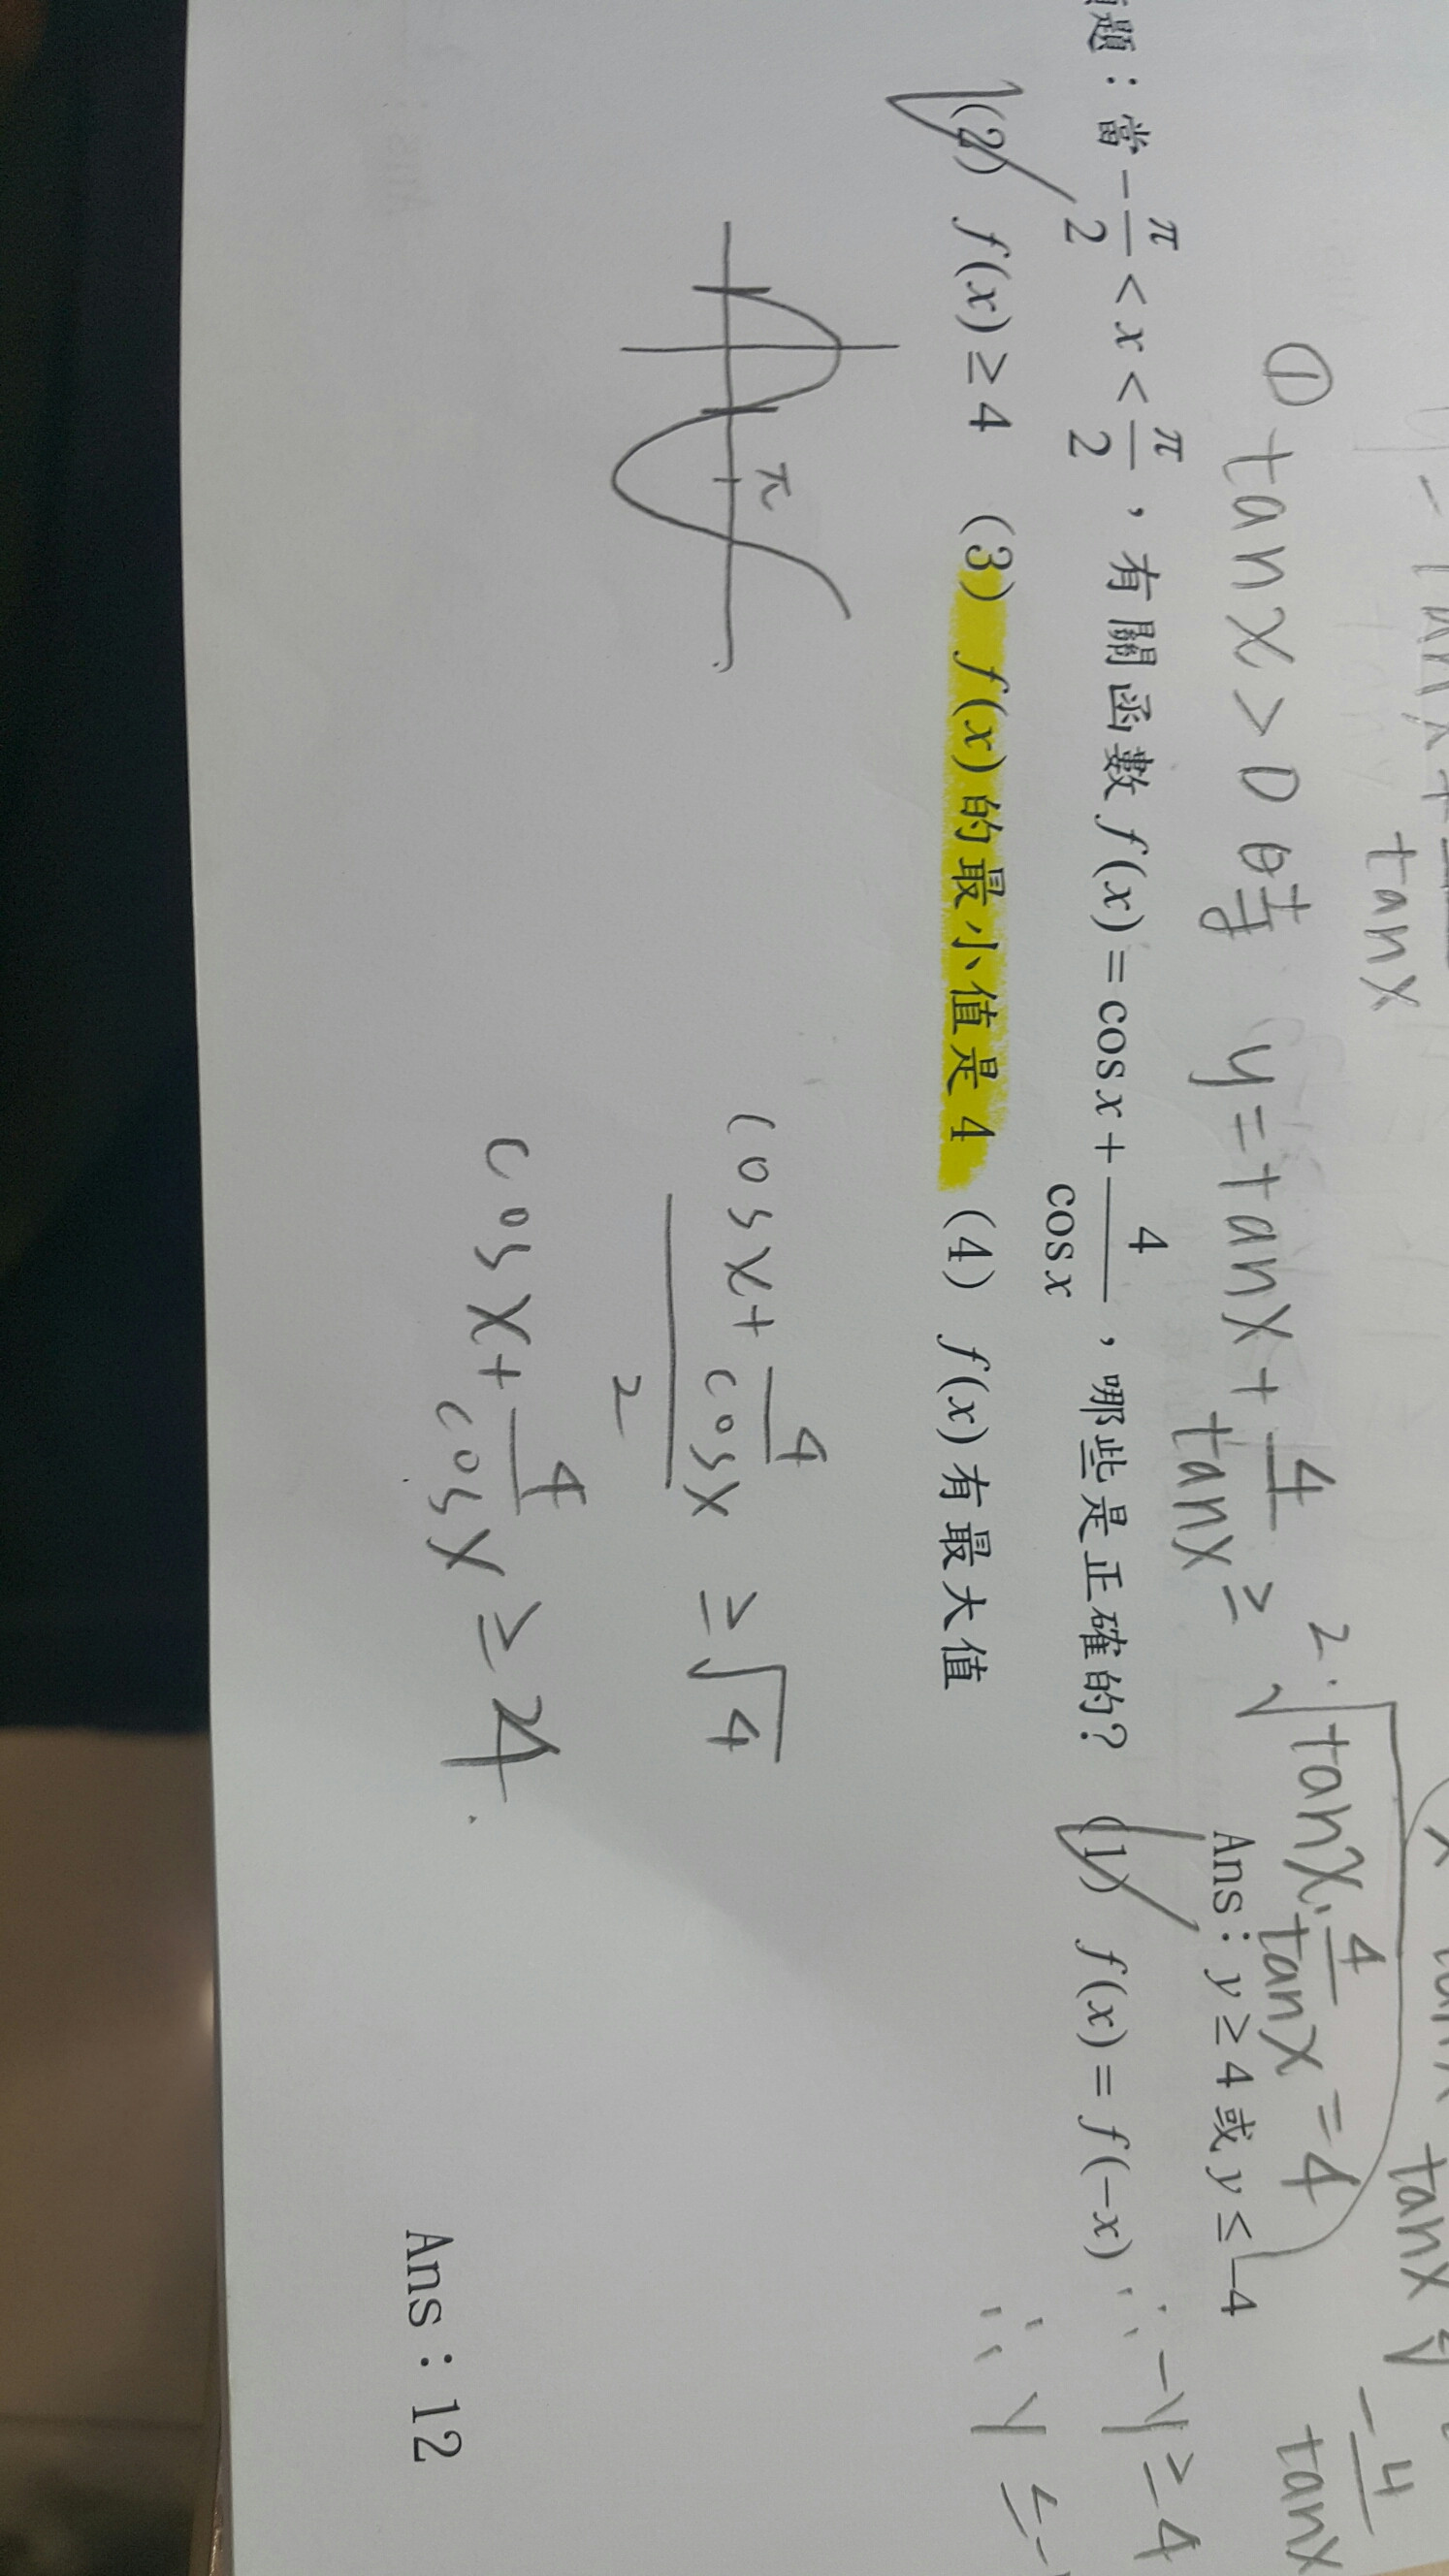 tan x
① tan x > 0 時 y = tan x + 4/tan x ≥ 2·√(tan x · 4/tan x) = 4
- 4/tan x
Ans：y ≥ 4 或 y ≤ -4
題：當 -π/2 < x < π/2，有關函數 f(x) = cos x + 4/cos x，哪些是正確的？ (1) f(x) = f(-x)
∵ -y ≥ 4
(2) f(x) ≥ 4 (3) f(x)的最小值是 4 (4) f(x)有最大值
∴ y ≤ -
π
(cos x + 4/cos x)/2 ≥ √4
cos x + 4/cos x ≥ 4
Ans：12